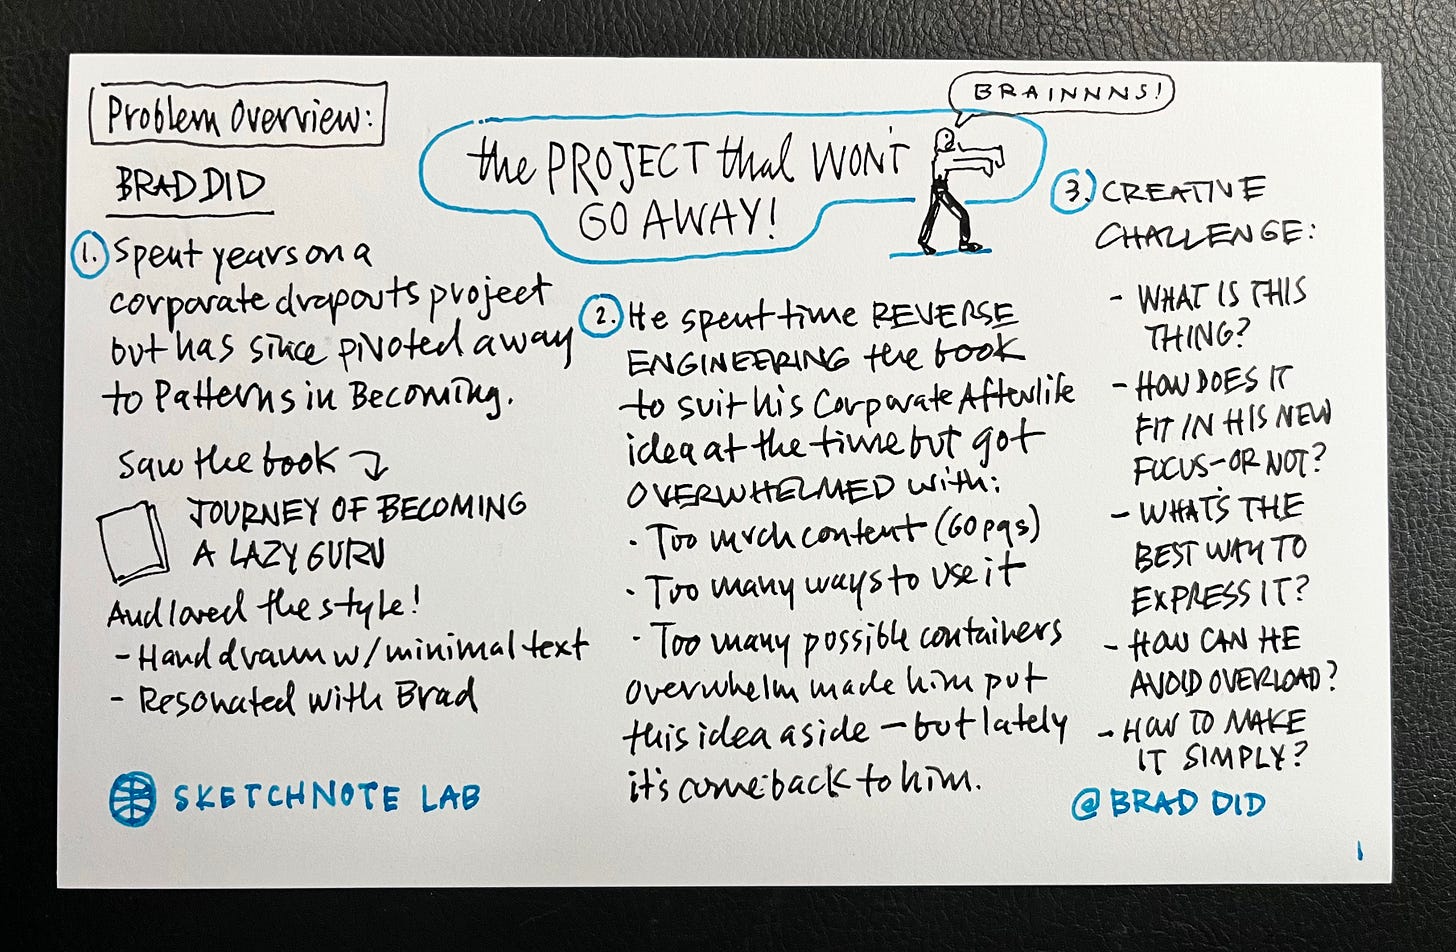 Problem Overview:
BRAD DID
the PROJECT that WON'T
GO AWAY!
BRAINNNS!
1. Spent years on a
corporate dropouts project
but has since pivoted away
to Patterns in Becoming.
Saw the book
JOURNEY OF BECOMING
A LAZY GURU
And loved the style!
- Hand drawn w/minimal text
- Resonated with Brad
SKETCHNOTE LAB
2. He spent time REVERSE
ENGINEERING the book
to suit his Corporate Afterlife
idea at the time but got
OVERWHELMED with:
· Too much content (60 pgs)
· Too many ways to use it
· Too many possible containers
overwhelm made him put
this idea aside – but lately
it's come back to him.
3. CREATIVE
CHALLENGE:
- WHAT IS THIS
THING?
- HOW DOES IT
FIT IN HIS NEW
FOCUS – OR NOT?
- WHAT'S THE
BEST WAY TO
EXPRESS IT?
- HOW CAN HE
AVOID OVERLOAD?
- HOW TO MAKE
IT SIMPLY?
@BRAD DID
1